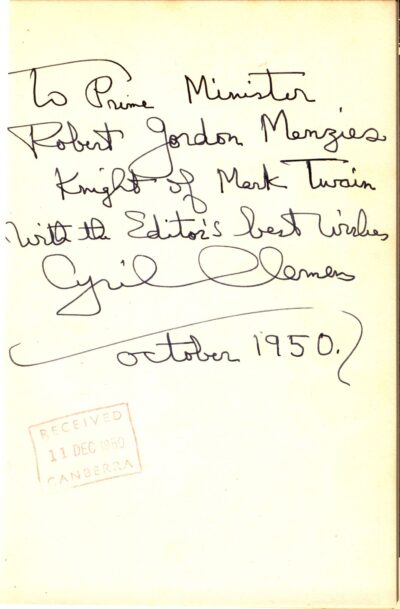 To Prime Minister
Robert Gordon Menzies
Knight of Mark Twain
With the Editor's best wishes
Cyril Clemens
October 1950.
RECEIVED
11 DEC 1950
CANBERRA